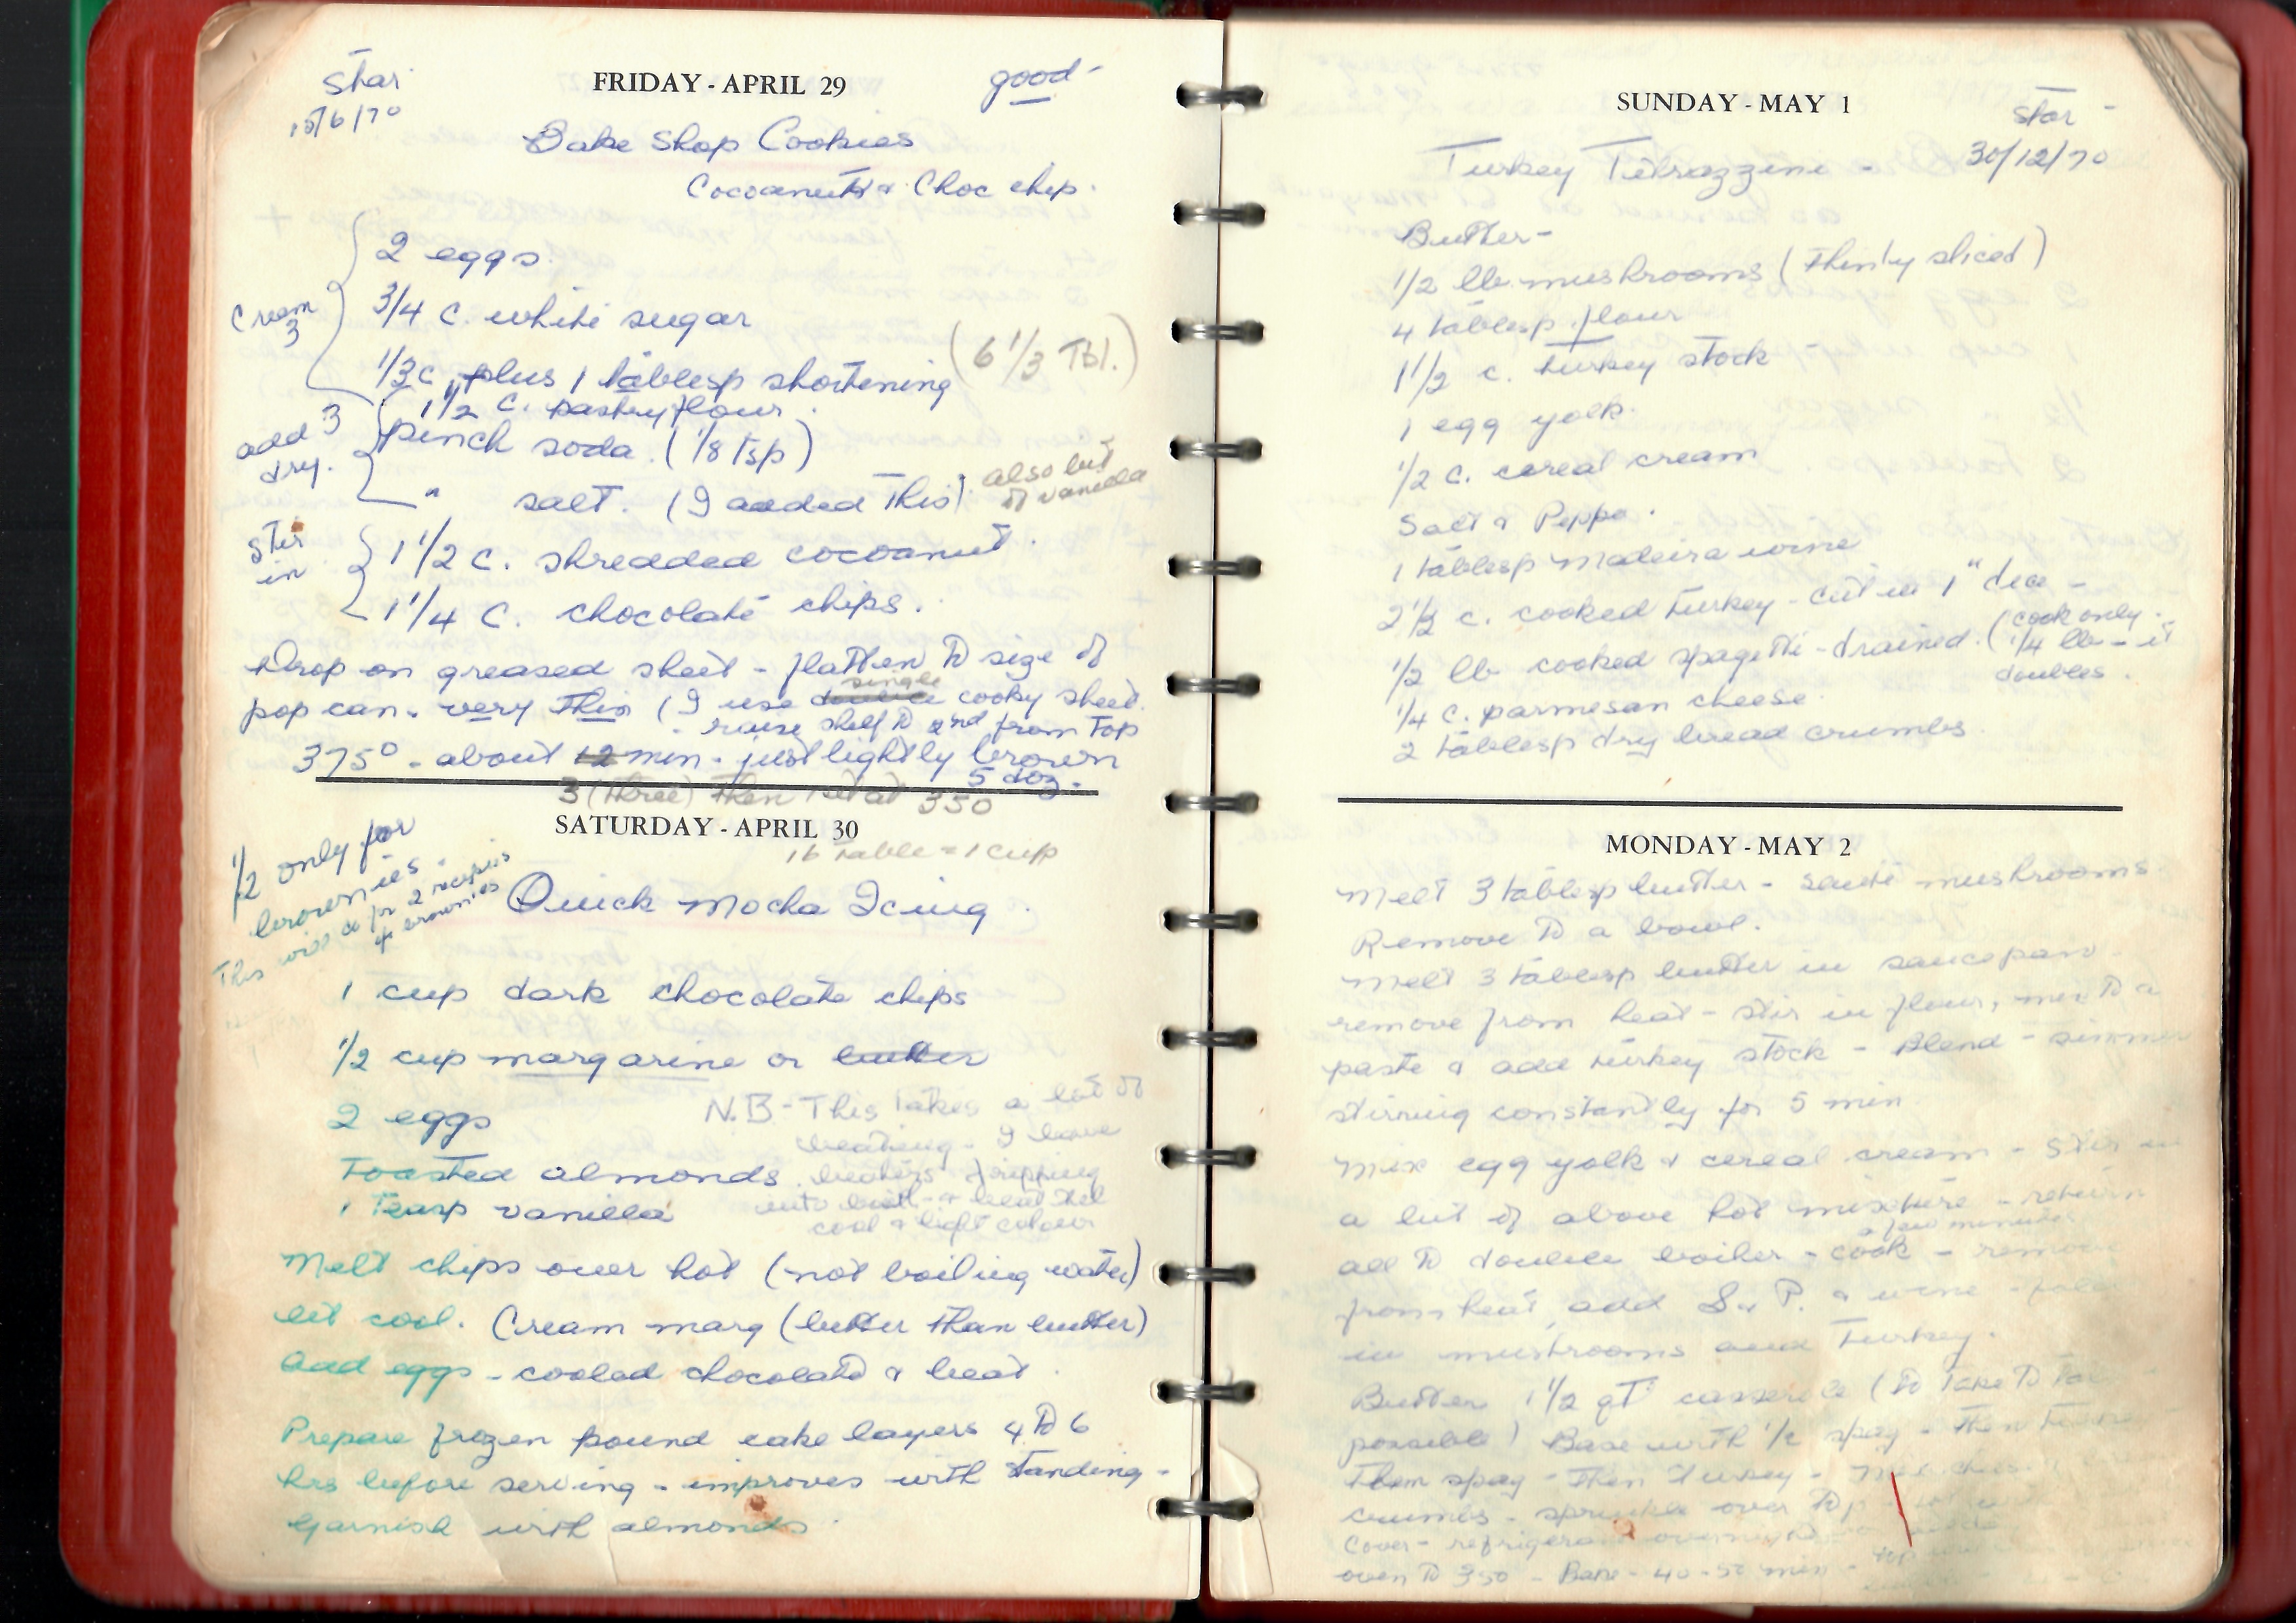 Star
15/6/70
FRIDAY - APRIL 29
good -
Bake Shop Cookies
Cocoanut & Choc chip.
Cream 3
2 eggs.
3/4 c. white sugar
1/3 c plus 1 tablesp shortening (6 1/3 Tbl.)
add 3 dry.
1 1/2 c. pastry flour.
pinch soda. (1/8 tsp)
" salt. (I added this) also bit of vanilla
stir in
1 1/2 c. shredded cocoanut.
1 1/4 c. chocolate chips.
Drop on greased sheet - flatten to size of
pop can. very thin (I use double single cooky sheet.
- raise shelf to 2nd from top
375° - about 12 min - just lightly brown
5 doz.
3 (three) then at 350
SATURDAY - APRIL 30
16 table = 1 cup
1/2 only for
brownies.
This will do for 2 recipes
of brownies
Quick Mocha Icing.
1 cup dark chocolate chips
1/2 cup margarine or butter
2 eggs
Toasted almonds.
1 teasp vanilla
N.B - This takes a lot of
beating - I leave
beaters dripping
into bowl - & beat till
cool & light colour
Melt chips over hot (not boiling water)
let cool. Cream marg (better than butter)
Add eggs - cooled chocolate & beat.
Prepare frozen pound cake layers 4 to 6
hrs before serving - improves with standing -
Garnish with almonds.
SUNDAY - MAY 1
Star -
30/12/70
Turkey Tetrazzine -
Butter -
1/2 lb. mushrooms (thinly sliced)
4 tablesp flour
1 1/2 c. turkey stock
1 egg yolk.
1/2 c. cereal cream
Salt & Peppe.
1 tablesp Madeira wine
2 1/2 c. cooked turkey - cut in 1" dice -
1/2 lb cooked spagetti - drained. (cook only
1/4 lb - it
doubles.
1/4 c. parmesan cheese
2 tablesp dry bread crumbs.
MONDAY - MAY 2
Melt 3 tablesp butter - sauté mushrooms.
Remove to a bowl.
Melt 3 tablesp butter in saucepan.
remove from heat - stir in flour, mix to a
paste & add turkey stock - Blend - simmer
stirring constantly for 5 min.
Mix egg yolk & cereal cream - Stir in
a bit of above hot mixture - return
all to double boiler - cook a few minutes - remove
from heat, add S & P. & wine - fold
in mushrooms and turkey.
Butter 1 1/2 qt casserole (to take to
possible) Base with 1/2 spag - then turkey
then spag - then turkey - Mix cheese
crumbs - sprinkle over top
Cover - refrigerate overnight
oven to 350 - Bake - 40 - 50 min - top